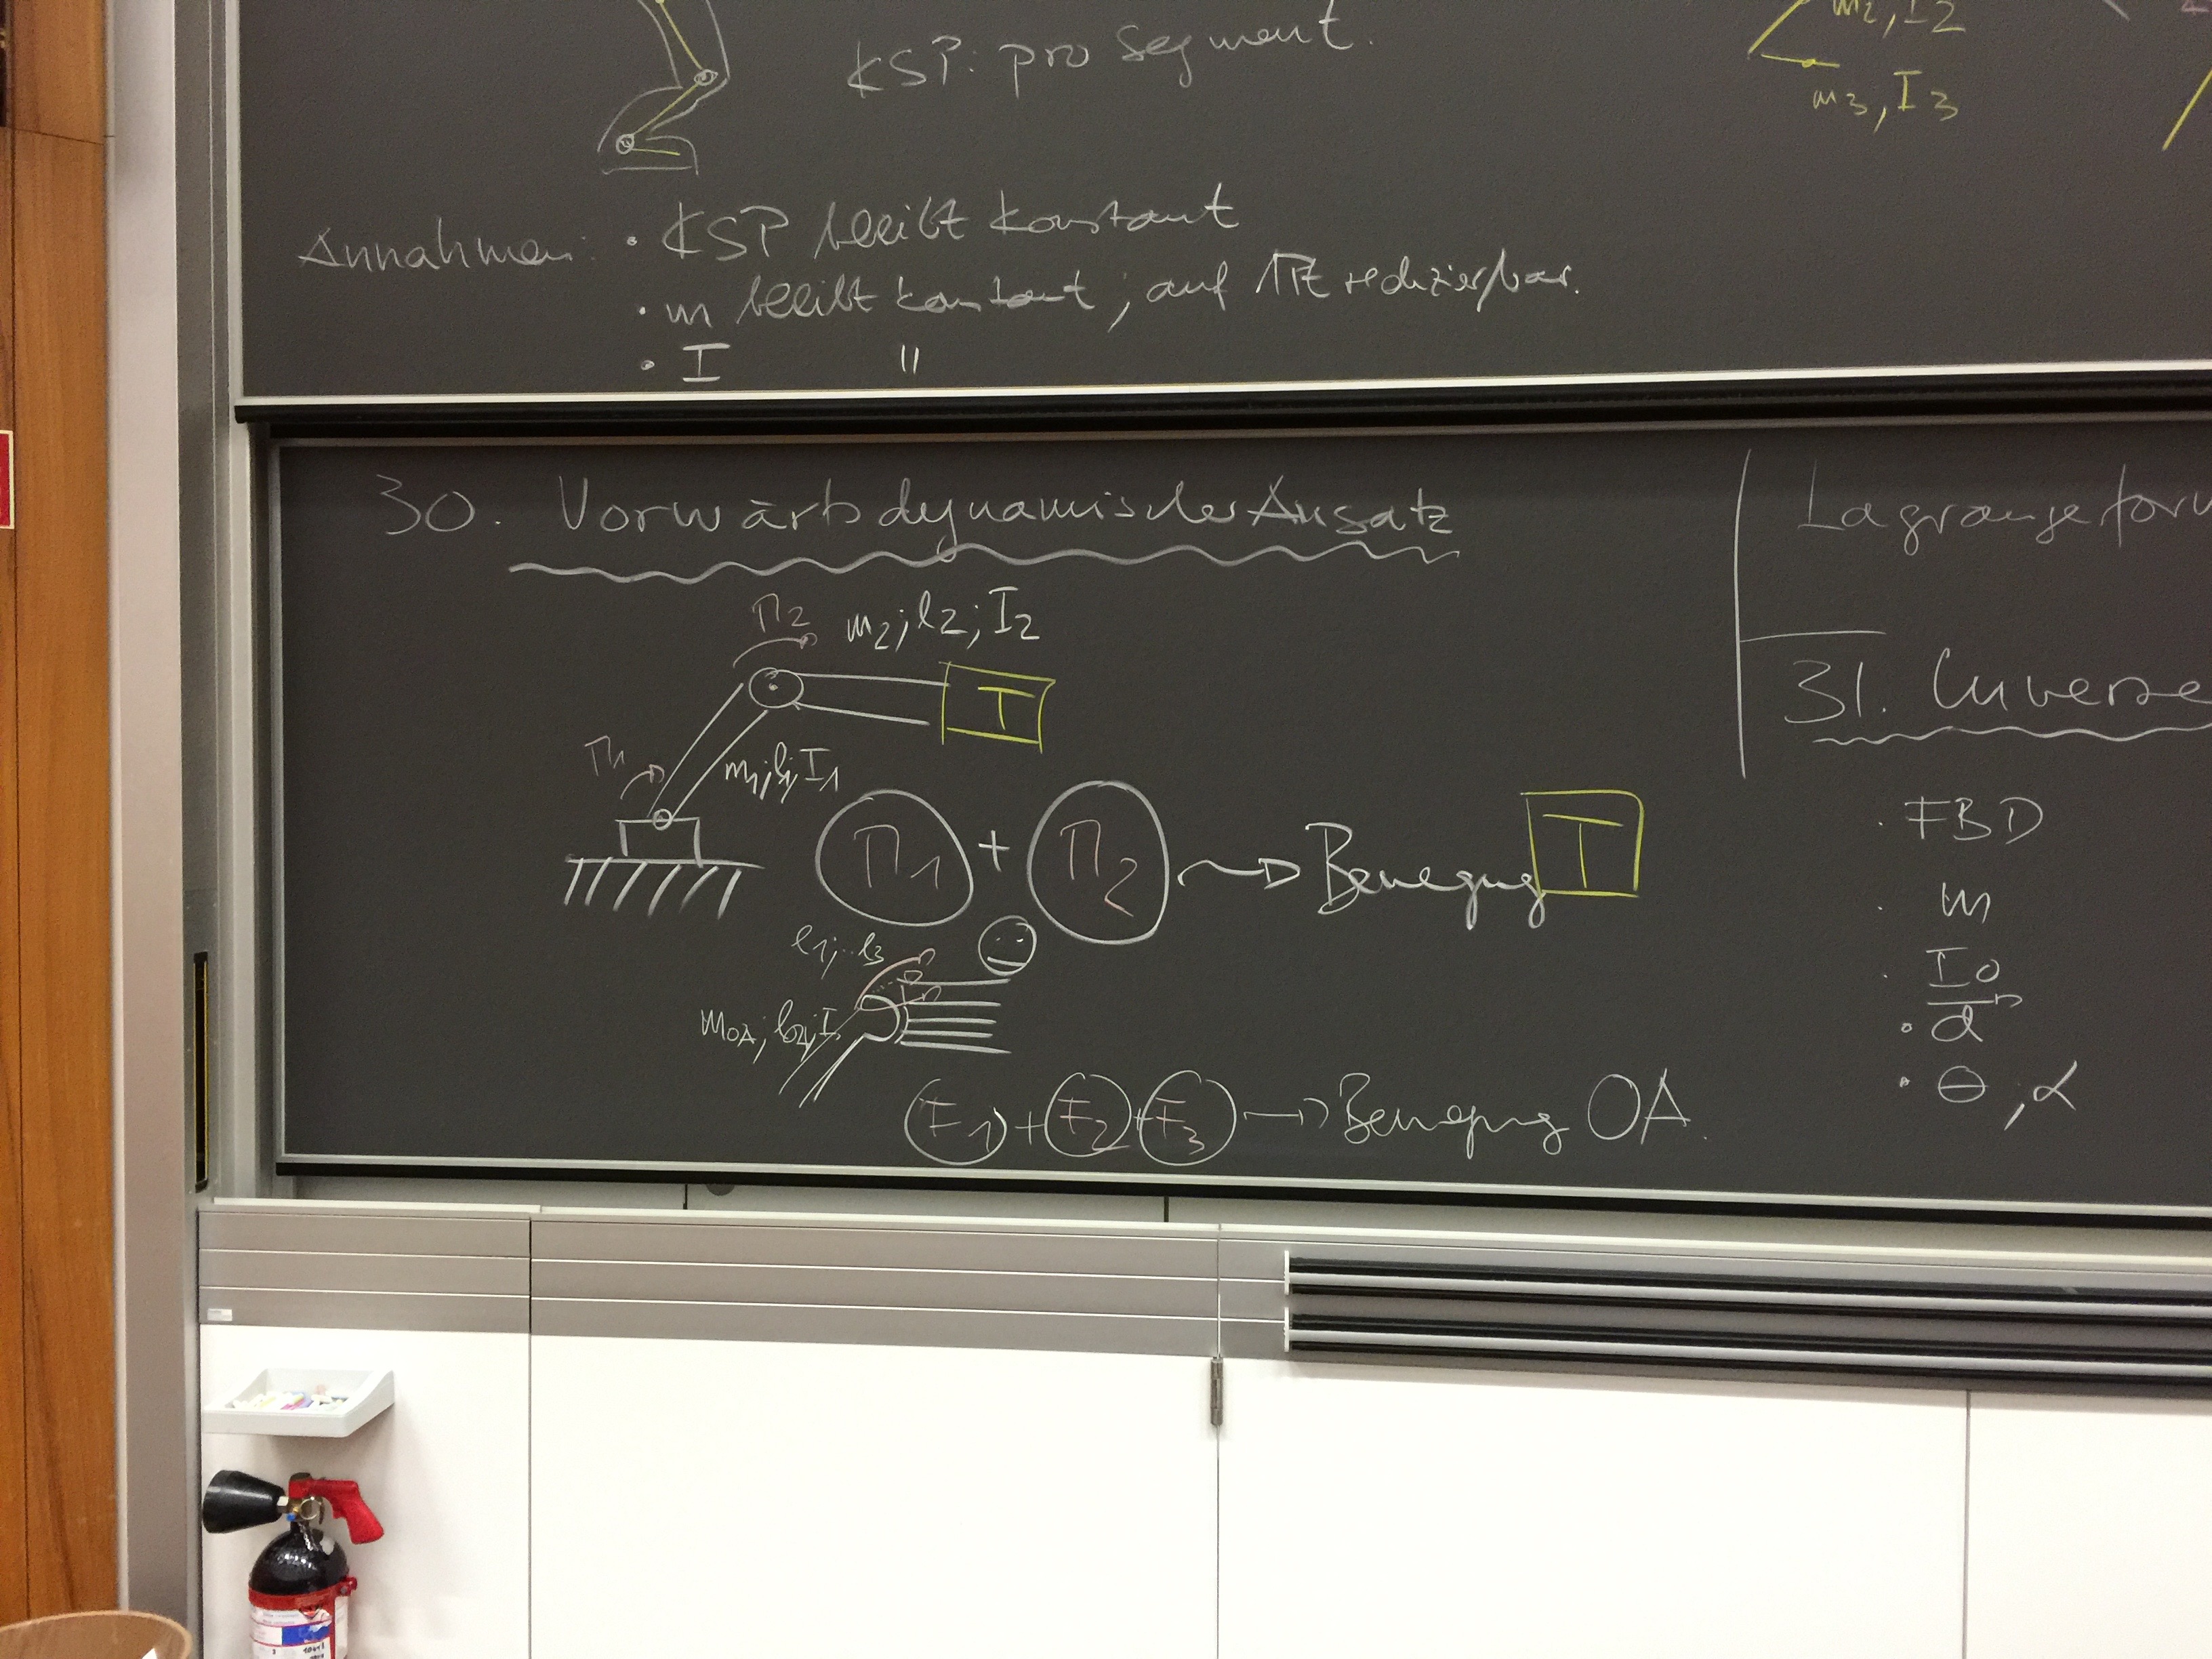 m2, I2
KSP: pro Segment.
m3, I3
Annahmen: • KSP bleibt konstant
• m bleibt konstant; auf 1Pt reduzierbar.
• I "
30. Vorwärtsdynamischer Ansatz
M2 m2; l2; I2
T
M1 m1; l1; I1
M1 + M2 → Bewegung T
l1; .. l3
mOA; lOA; I
F1 + F2 + F3 → Bewegung OA.
Lagrangeform
31. Inverse
• FBD
• m
• I0
• d
• θ; α